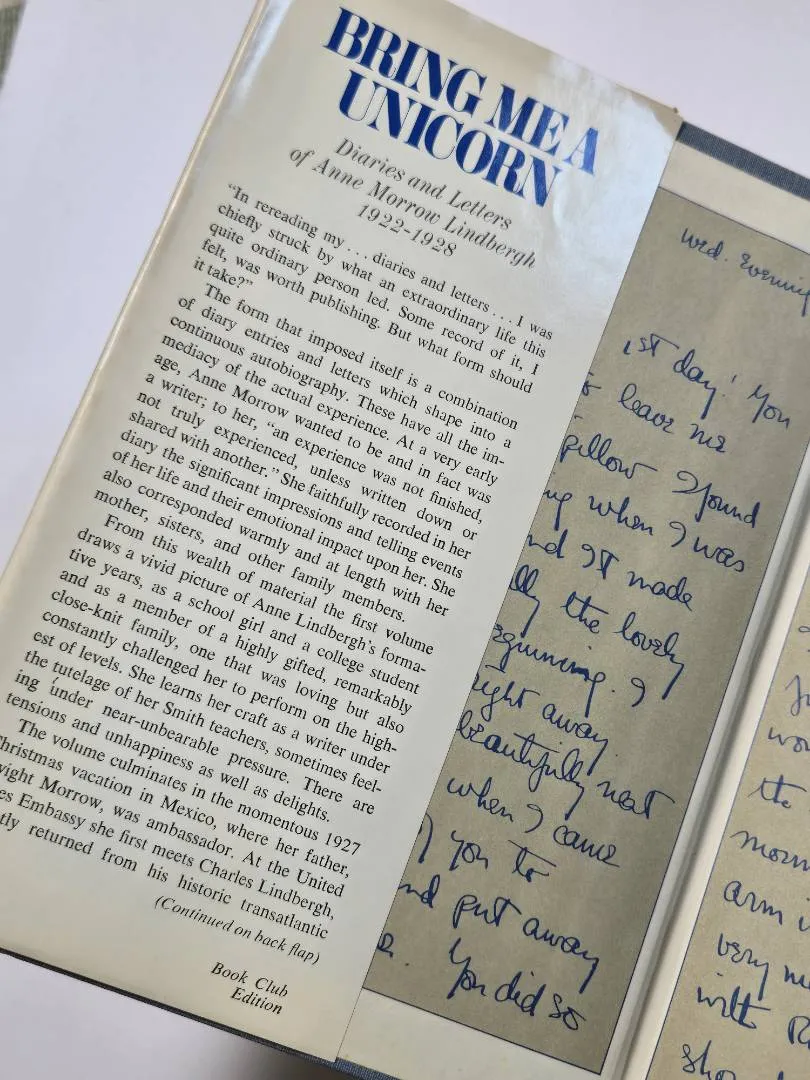 BRING ME A
UNICORN
Diaries and Letters
of Anne Morrow Lindbergh
1922-1928
"In rereading my . . . diaries and letters . . . I was
chiefly struck by what an extraordinary life this
quite ordinary person led. Some record of it, I
felt, was worth publishing. But what form should
it take?"
The form that imposed itself is a combination
of diary entries and letters which shape into a
continuous autobiography. These have all the im-
mediacy of the actual experience. At a very early
age, Anne Morrow wanted to be and in fact was
a writer; to her, "an experience was not finished,
not truly experienced, unless written down or
shared with another." She faithfully recorded in her
diary the significant impressions and telling events
of her life and their emotional impact upon her. She
also corresponded warmly and at length with her
mother, sisters, and other family members.
From this wealth of material the first volume
draws a vivid picture of Anne Lindbergh's forma-
tive years, as a school girl and a college student
and as a member of a highly gifted, remarkably
close-knit family, one that was loving but also
constantly challenged her to perform on the high-
est of levels. She learns her craft as a writer under
the tutelage of her Smith teachers, sometimes feel-
ing under near-unbearable pressure. There are
tensions and unhappiness as well as delights.
The volume culminates in the momentous 1927
Christmas vacation in Mexico, where her father,
wight Morrow, was ambassador. At the United
es Embassy she first meets Charles Lindbergh,
tly returned from his historic transatlantic
(Continued on back flap)
Book Club
Edition
Wed. Evening
1st day! You
leave me
pillow I found
ing when I was
nd It made
lly the lovely
eginning. I
right away.
beautifully neat
when I came
you to
nd put away
You did so
wou
the
morn
arm
very
with
sho